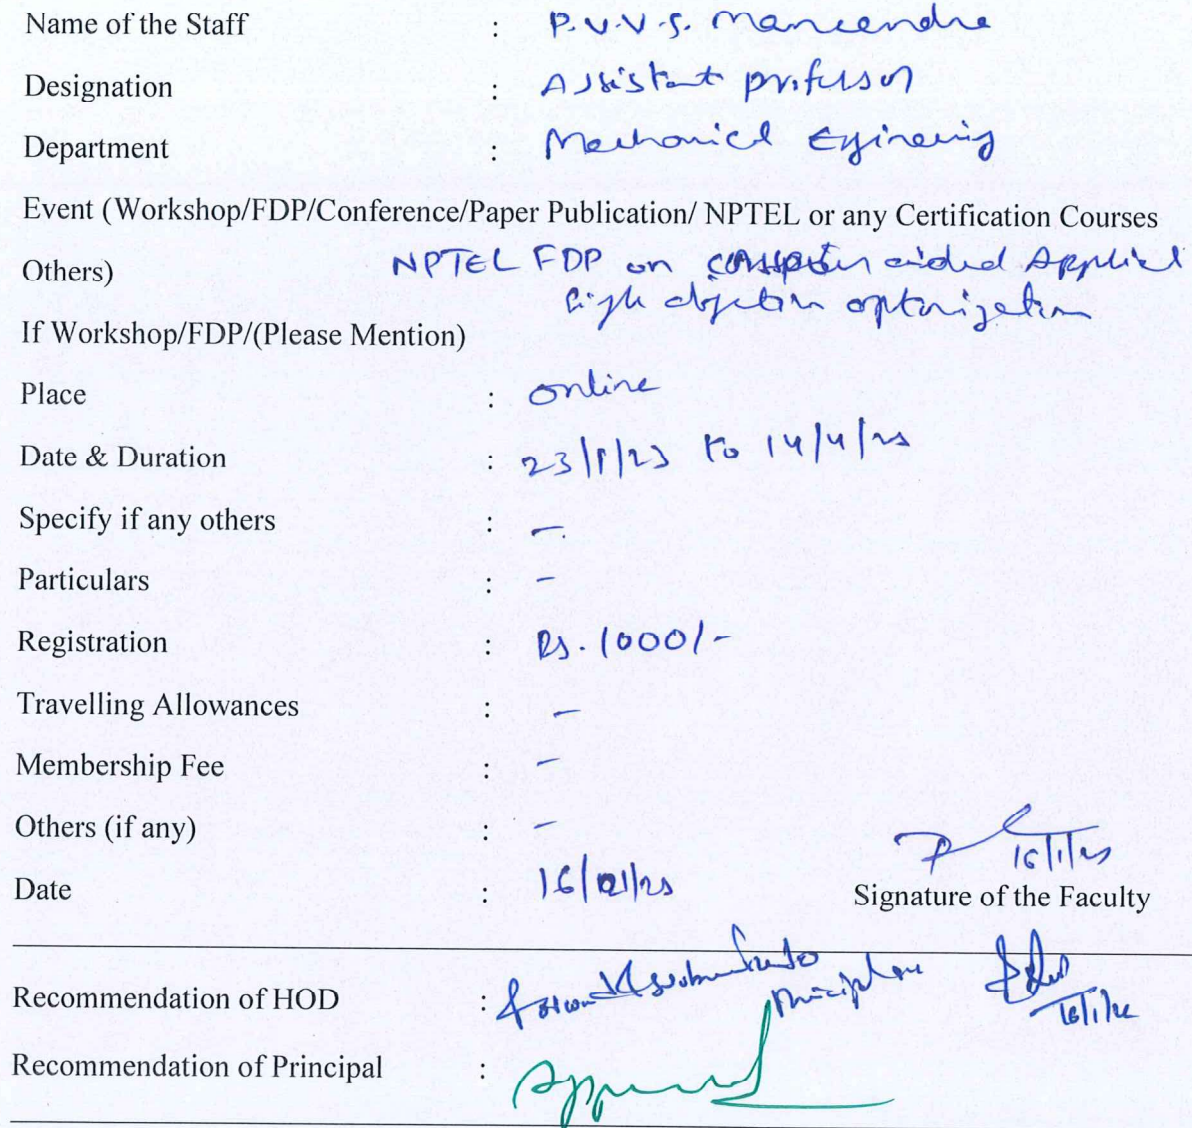 Name of the Staff : P.V.V.S. Maneendra
Designation : Assistant professor
Department : Mechanical Engineering
Event (Workshop/FDP/Conference/Paper Publication/ NPTEL or any Certification Courses
Others) NPTEL FDP on computer aided Applied
single objective optimization
If Workshop/FDP/(Please Mention)
Place : online
Date & Duration : 23/1/23 to 14/4/23
Specify if any others : -
Particulars : -
Registration : Rs. 1000/-
Travelling Allowances : -
Membership Fee : -
Others (if any) : -
16/1/23
Date : 16/01/23
Signature of the Faculty
Recommendation of HOD : principal
16/1/22
Recommendation of Principal : Approved